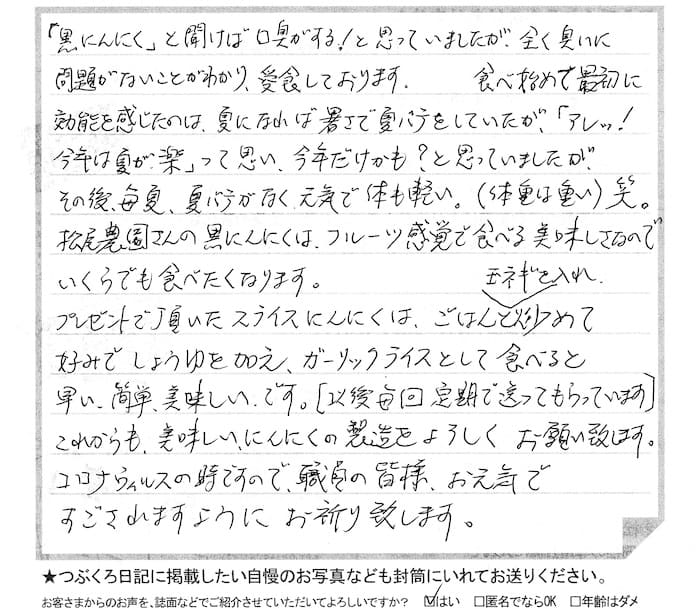 「黒にんにく」と聞けば口臭がする!と思っていましたが、全く臭いに
問題がないことがわかり、愛食しております。 食べ始めて最初に
効能を感じたのは、夏になれば暑さで夏バテをしていたが、「アレッ!
今年は夏が楽」って思い、今年だけかも?と思っていましたが、
その後、毎夏、夏バテがなく、元気で体も軽い。(体重は重い)笑。
松尾農園さんの黒にんにくは、フルーツ感覚で食べる美味しさなので
いくらでも食べたくなります。
玉ネギを入れ、
プレゼントで頂いたスライスにんにくは、ごはんと炒めて
好みでしょうゆを加え、ガーリックライスとして食べると
早い、簡単、美味しい、です。[以後毎回定期で送ってもらっています]
これからも、美味しい、にんにくの製造をよろしくお願い致します。
コロナウィルスの時ですので、職員の皆様、お元気で
すごされますようにお祈り致します。
★つぶくろ日記に掲載したい自慢のお写真なども封筒にいれてお送りください。
お客さまからのお声を、誌面などでご紹介させていただいてよろしいですか? ☑はい □匿名でならOK □年齢はダメ